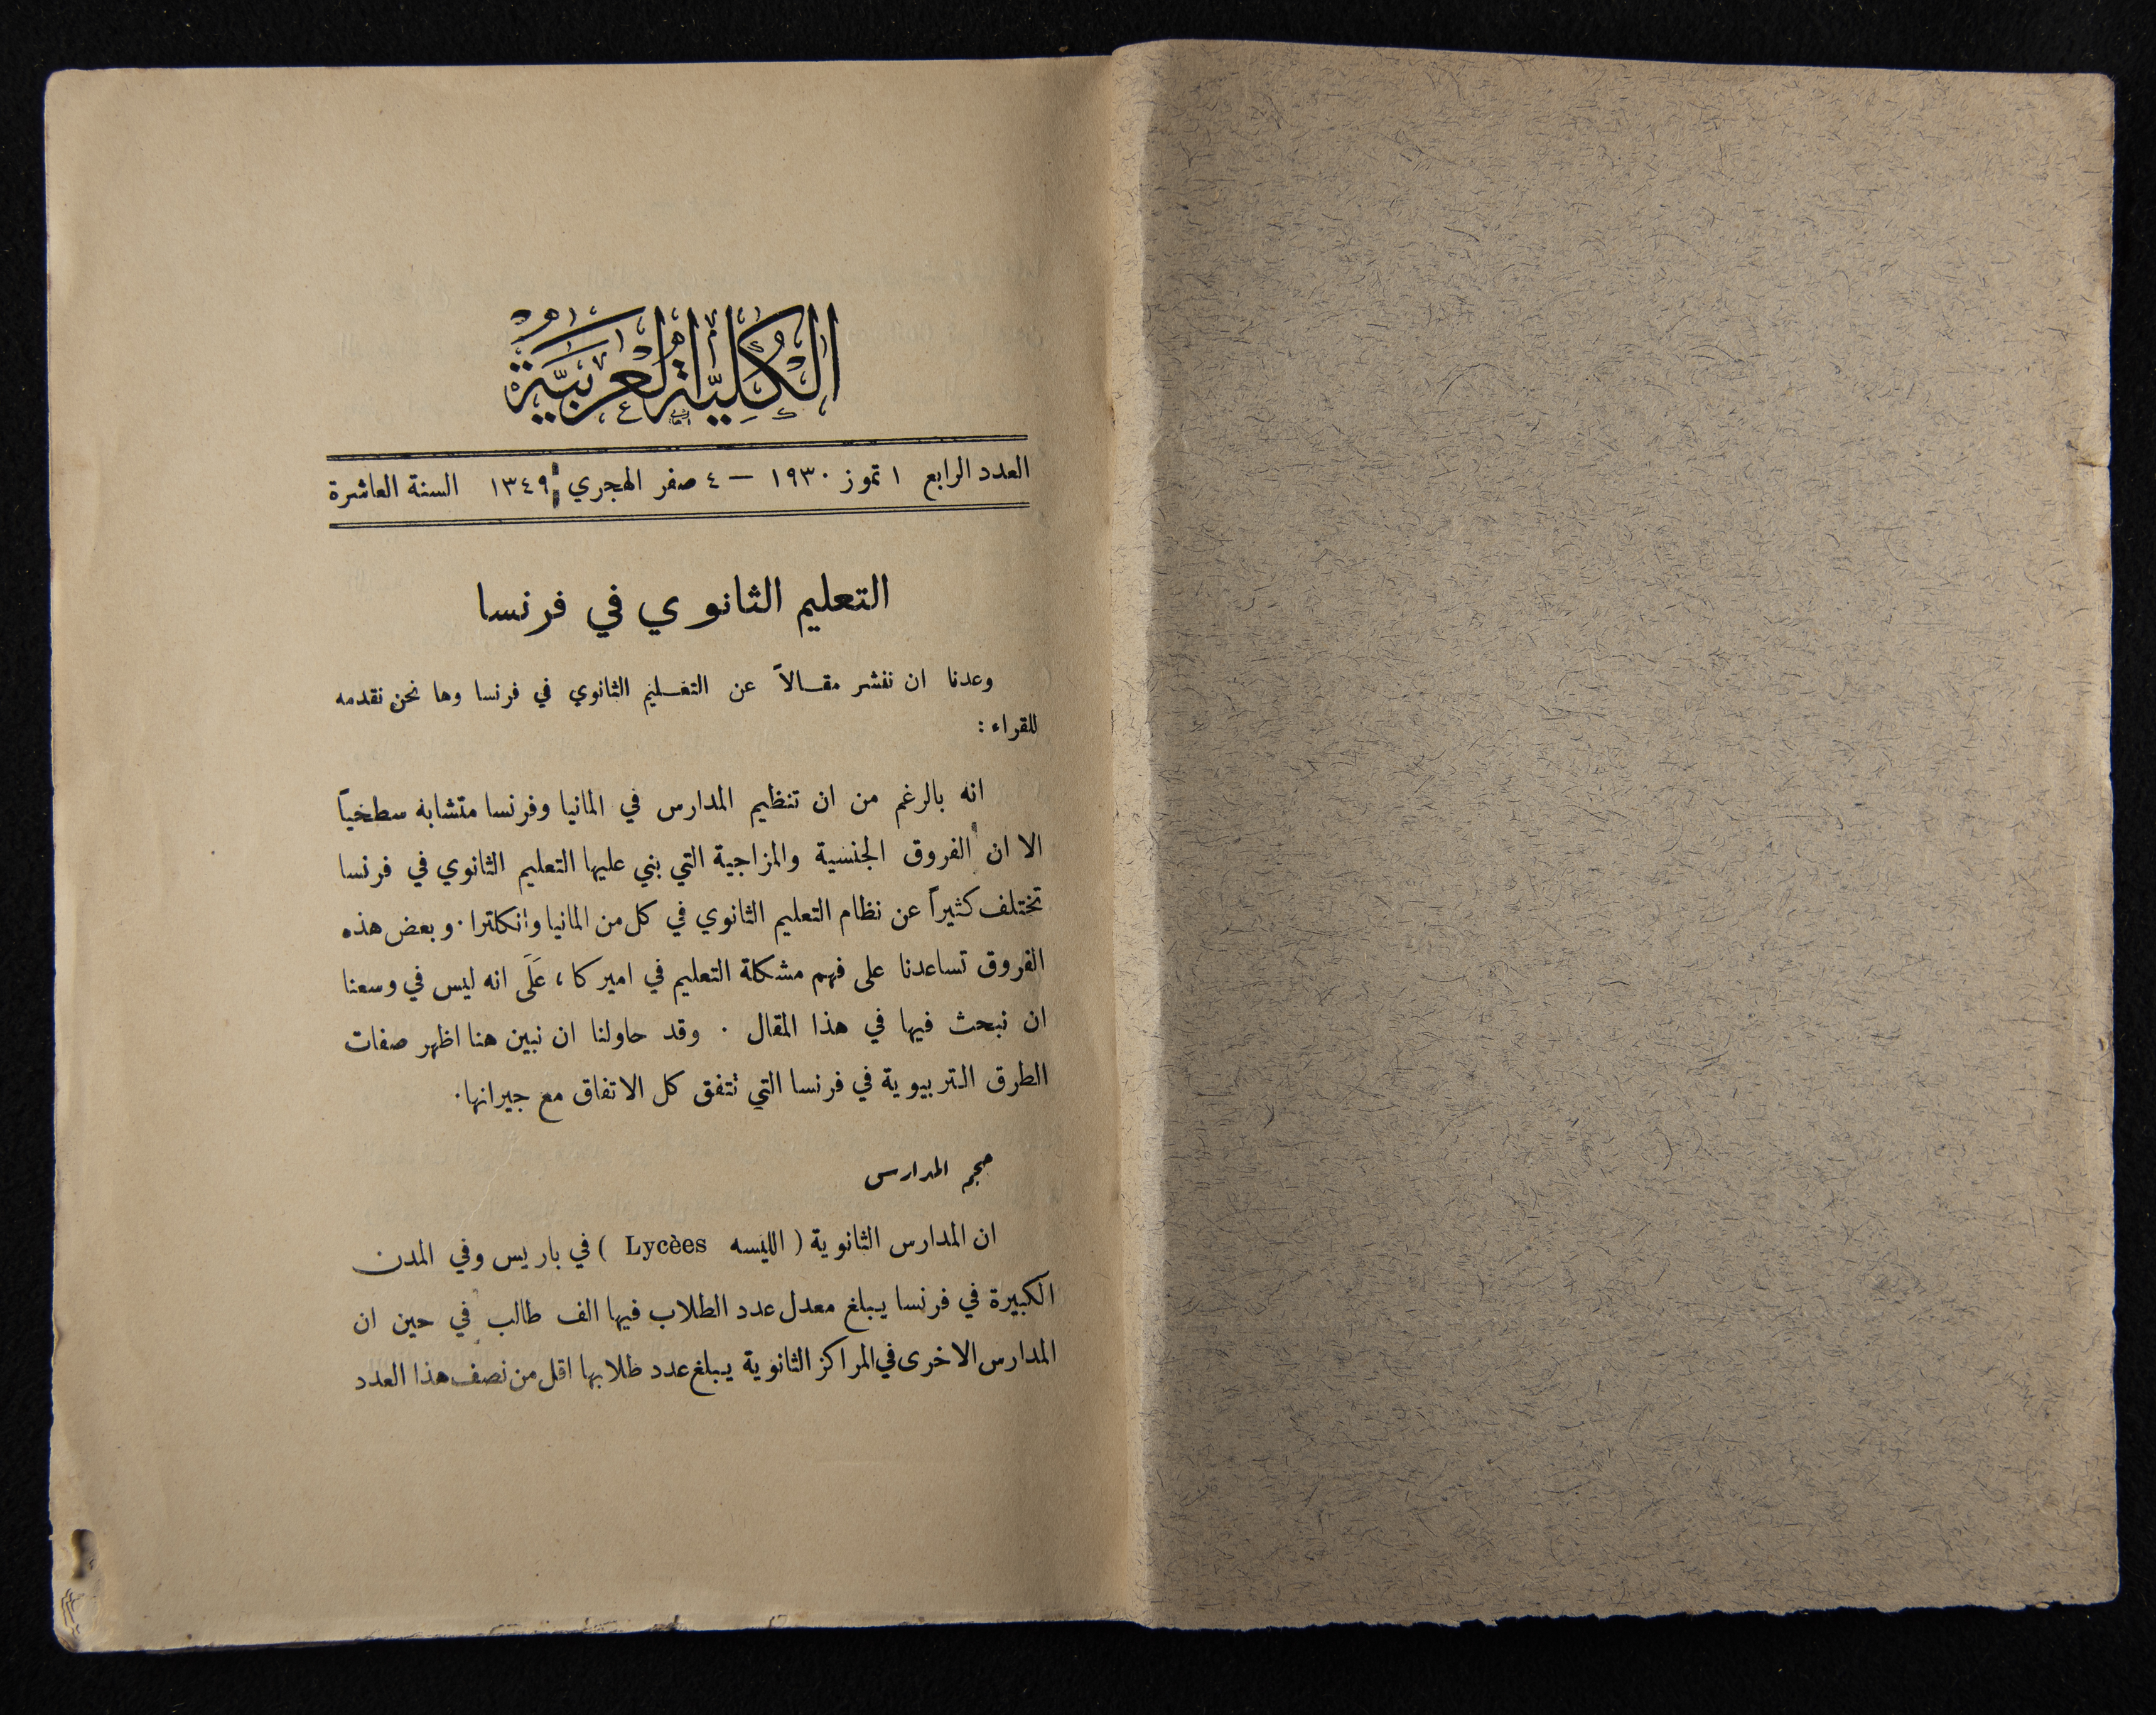 الكُلِّيَّةُ العَرَبِيَّةُ
العدد الرابع ١ تموز ١٩٣٠ — ٤ صفر الهجري ١٣٤٩ السنة العاشرة
التعليم الثانوي في فرنسا
وعدنا ان ننشر مقـالاً عن التعـليم الثانوي في فرنسا وها نحن نقدمه
للقراء :
انه بالرغم من ان تنظيم المدارس في المانيا وفرنسا متشابه سطحياً
الا ان الفروق الجنسية والمزاجية التي بني عليها التعليم الثانوي في فرنسا
تختلف كثيراً عن نظام التعليم الثانوي في كل من المانيا وانكلترا . وبعض هذه
الفروق تساعدنا على فهم مشكلة التعليم في اميركا ، عَلَى انه ليس في وسعنا
ان نبحث فيها في هذا المقال . وقد حاولنا ان نبين هنا اظهر صفات
الطرق التربيوية في فرنسا التي تتفق كل الاتفاق مع جيرانها .
حجم المدارس
ان المدارس الثانوية ( الليسه Lycèes ) في باريس وفي المدن
الكبيرة في فرنسا يبلغ معدل عدد الطلاب فيها الف طالب في حين ان
المدارس الاخرى في المراكز الثانوية يبلغ عدد طلابها اقل من نصف هذا العدد